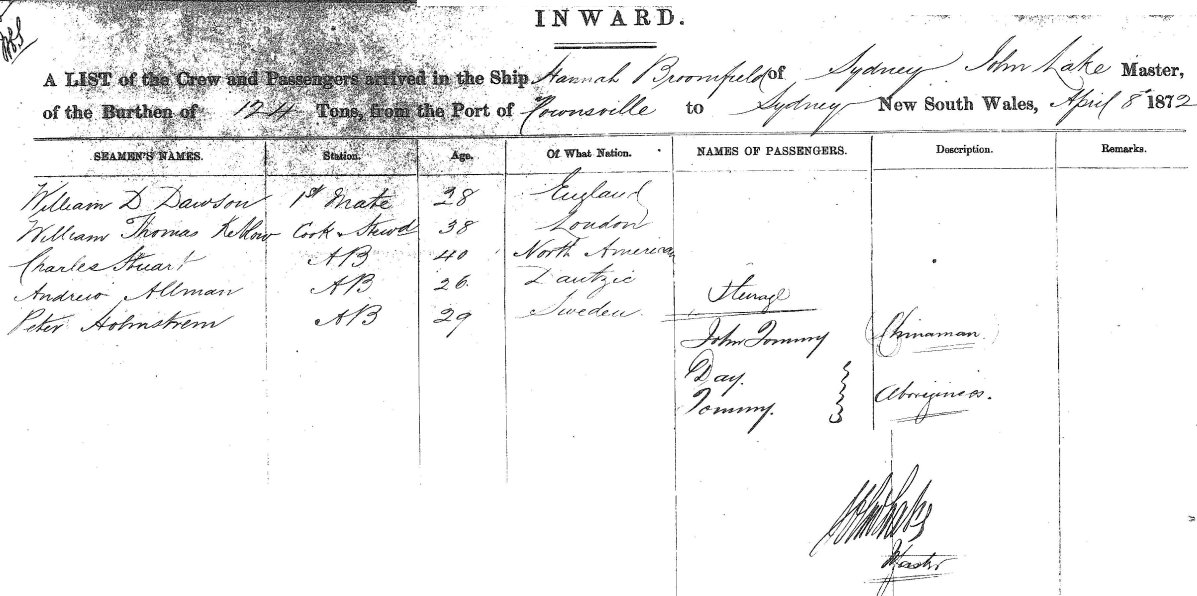 INWARD.
A LIST of the Crew and Passengers arrived in the Ship Hannah Broomfield of Sydney John Lake Master,
of the Burthen of 124 Tons, from the Port of Townsville to Sydney New South Wales, April 8 1872
SEAMEN'S NAMES. Station. Age. Of What Nation. NAMES OF PASSENGERS. Description. Remarks.
William D Dawson 1st Mate 28 England
William Thomas Kellow Cook & Stewd 38 London
Charles Stuart AB 40 North America
Andrew Allman AB 26 Dantzic
Steerage
Peter Holmstrem AB 29 Sweden
John Tommy (Chinaman)
Day.
Tommy. Aborigines.
John Lake
Master